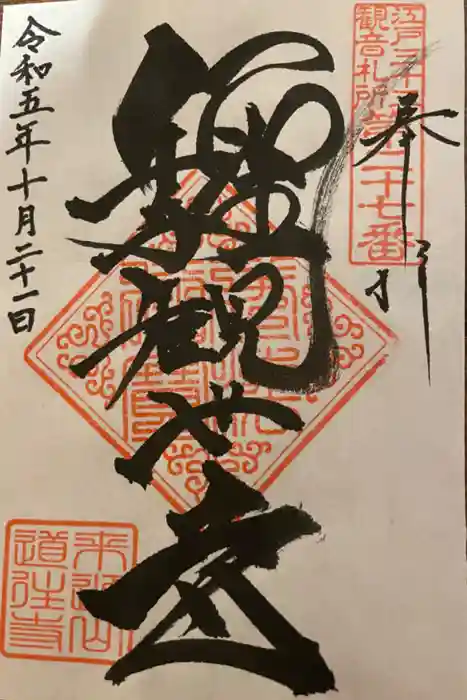 江戸三十三
観音札所
第二十七番
奉拝
観世音
令和五年十月二十一日
来迎山
道往寺